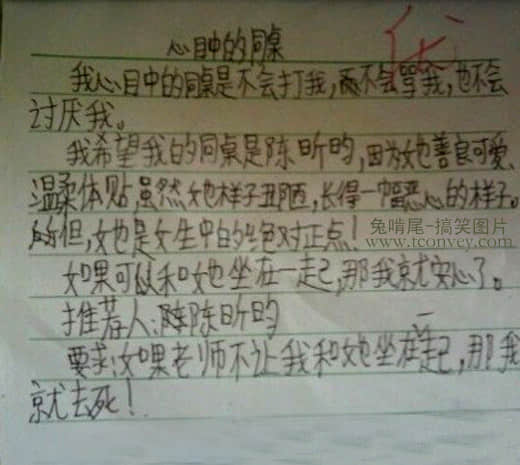 心目中的同桌
优
我心目中的同桌是不会打我,而不会骂我,也不会
讨厌我。
我希望我的同桌是陈昕昀,因为她善良可爱、
温柔体贴,虽然她样子丑陋,长得一幅恶心的样子。
的但,她是女生中的绝对正点!
兔啃尾-搞笑图片
www.tconvey.com
如果可以和她坐在一起,那我就安心了。
推荐人:陈陈昕昀
要求:如果老师不让我和她坐在一起,那我
就去死!